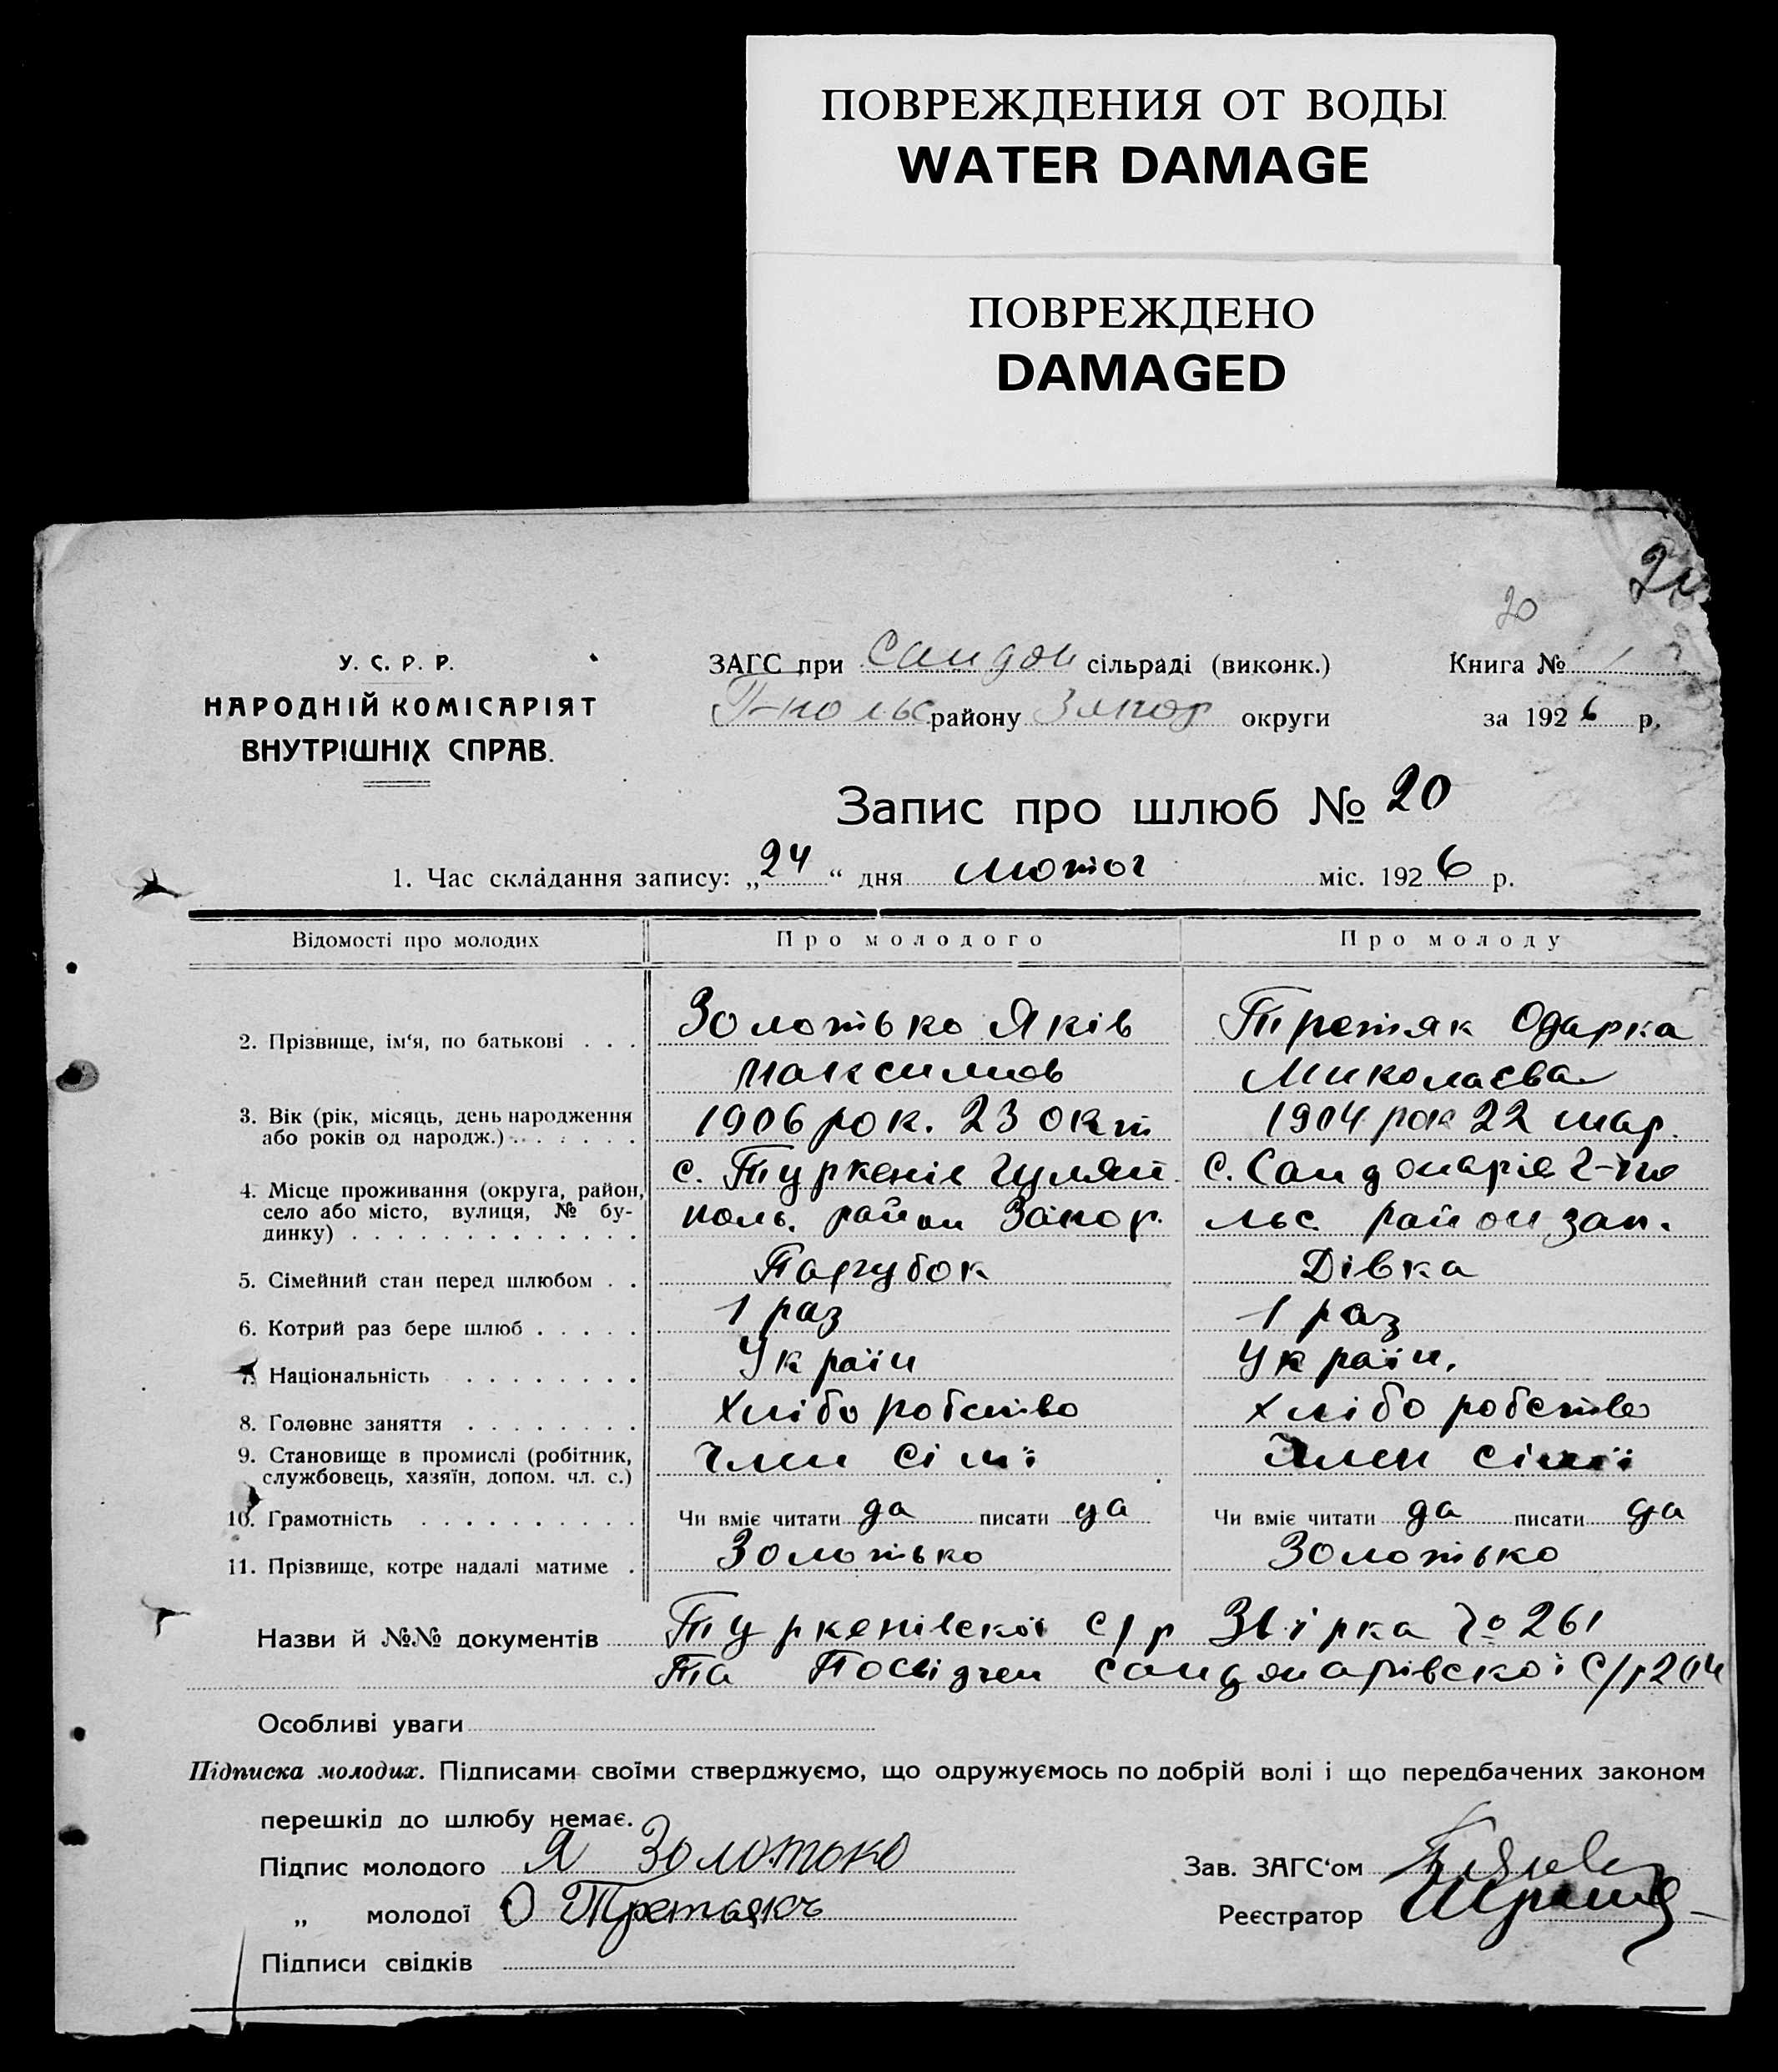 ПОВРЕЖДЕНИЯ ОТ ВОДЫ
WATER DAMAGE
ПОВРЕЖДЕНО
DAMAGED
20
У. С. Р. Р.
НАРОДНІЙ КОМІСАРІЯТ
ВНУТРІШНІХ СПРАВ.
ЗАГС при Сандом сільраді (виконк.)
Г-польс району Запор округи
Книга № 1
за 1926 р.
Запис про шлюб № 20
1. Час складання запису: „24“ дня лютог міс. 1926 р.
Відомості про молодих Про молодого Про молоду
2. Прізвище, ім‘я, по батькові . . . Золотько Яків Третяк Одарка
Максимов Миколаєва
3. Вік (рік, місяць, день народження 1906 рок. 23 окт 1904 рок 22 мар.
або років од народж.) . . . . . .
4. Місце проживання (округа, район, с. Туркенів Гуляй с. Сандомарів Г-по
село або місто, вулиця, № бу- поль. район Запор. льс. район зап.
динку) . . . . . . . . . . . . .
5. Сімейний стан перед шлюбом . . Парубок Дівка
6. Котрий раз бере шлюб . . . . . 1 раз 1 раз
7. Національність . . . . . . . . Україн Україн.
8. Головне заняття . . . . . . . . Хліборобство Хліборобство
9. Становище в промислі (робітник, член сімї член сімї
службовець, хазяїн, допом. чл. с.)
10. Грамотність . . . . . . . . . . Чи вміє читати да писати да Чи вміє читати да писати да
11. Прізвище, котре надалі матиме . Золотько Золотько
Назви й №№ документів Туркенівскої с/р Звірка № 261
та Посвідчен сандомарівскої с/р 204
Особливі уваги
Підписка молодих. Підписами своїми стверджуємо, що одружуємось по добрій волі і що передбачених законом
перешкід до шлюбу немає.
Підпис молодого Я Золотоко
Зав. ЗАГС‘ом
„ молодої О Третьякъ
Реєстратор
Підписи свідків